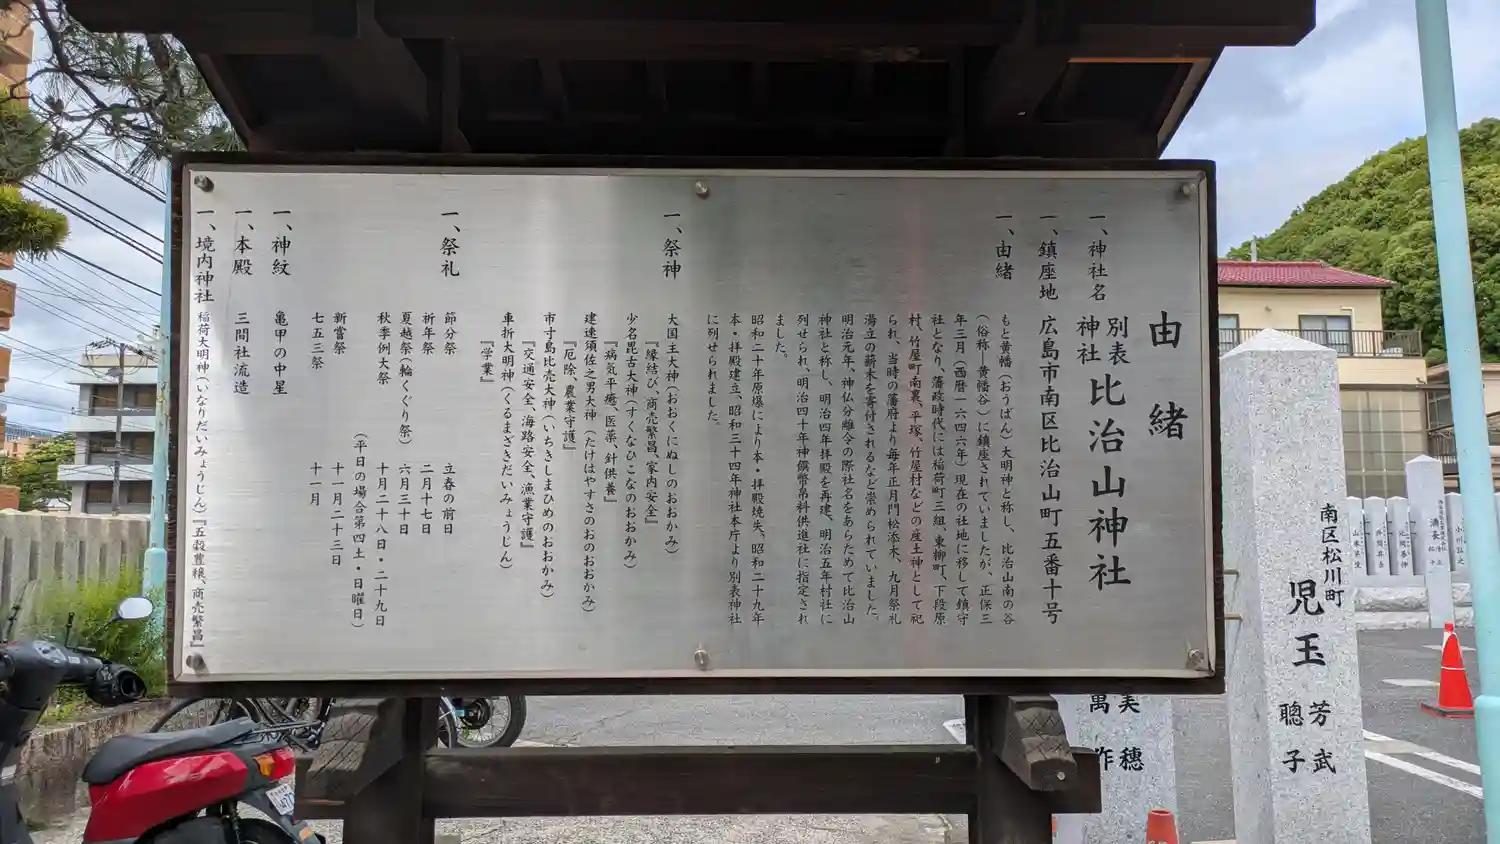 由緒
一、神社名
別表
神社
比治山神社
一、鎮座地
広島市南区比治山町五番十号
一、由緒
もと黄幡（おうばん）大明神と称し、比治山南の谷
（俗称―黄幡谷）に鎮座されていましたが、正保三
年三月（西暦一六四六年）現在の社地に移して鎮守
社となり、藩政時代には稲荷町三組、東柳町、下段原
村、竹屋町南裏、平塚、竹屋村などの産土神として祀
られ、当時の藩府より毎年正月門松添木、九月祭礼
湯立の薪木を寄付されるなど崇められていました。
明治元年、神仏分離令の際社名をあらためて比治山
神社と称し、明治四年拝殿を再建、明治五年村社に
列せられ、明治四十年神饌幣帛料供進社に指定され
ました。
昭和二十年原爆により本・拝殿焼失、昭和二十九年
本・拝殿建立、昭和三十四年神社本庁より別表神社
に列せられました。
一、祭神
大国主大神（おおくにぬしのおおかみ）
『縁結び、商売繁昌、家内安全』
少名毘古大神（すくなひこなのおおかみ）
『病気平癒、医薬、針供養』
建速須佐之男大神（たけはやすさのおのおおかみ）
『厄除、農業守護』
市寸島比売大神（いちきしまひめのおおかみ）
『交通安全、海路安全、漁業守護』
車折大明神（くるまざきだいみょうじん）
『学業』
一、祭礼
節分祭　立春の前日
祈年祭　二月十七日
夏越祭（輪くぐり祭）　六月三十日
秋季例大祭　十月二十八日・二十九日
（平日の場合第四土・日曜日）
新嘗祭　十一月二十三日
七五三祭　十一月
一、神紋
亀甲の中星
一、本殿
三間社流造
一、境内神社
稲荷大明神（いなりだいみょうじん）『五穀豊穣、商売繁昌』
南区松川町
児玉
芳武
聰子
美穂
萬作